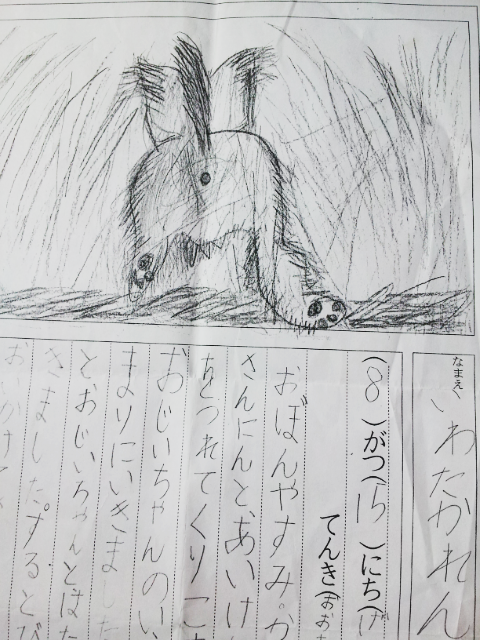 なまえ
いわたかれん
(8)がつ(15)にち(げ
てんき(おお
おぼんやすみ。か
さんにんと、あいけ
をつれてくりこ
おじいちゃんのい
まりにいきました
とおじいちゃんとはた
きました。するとび
おいかけて